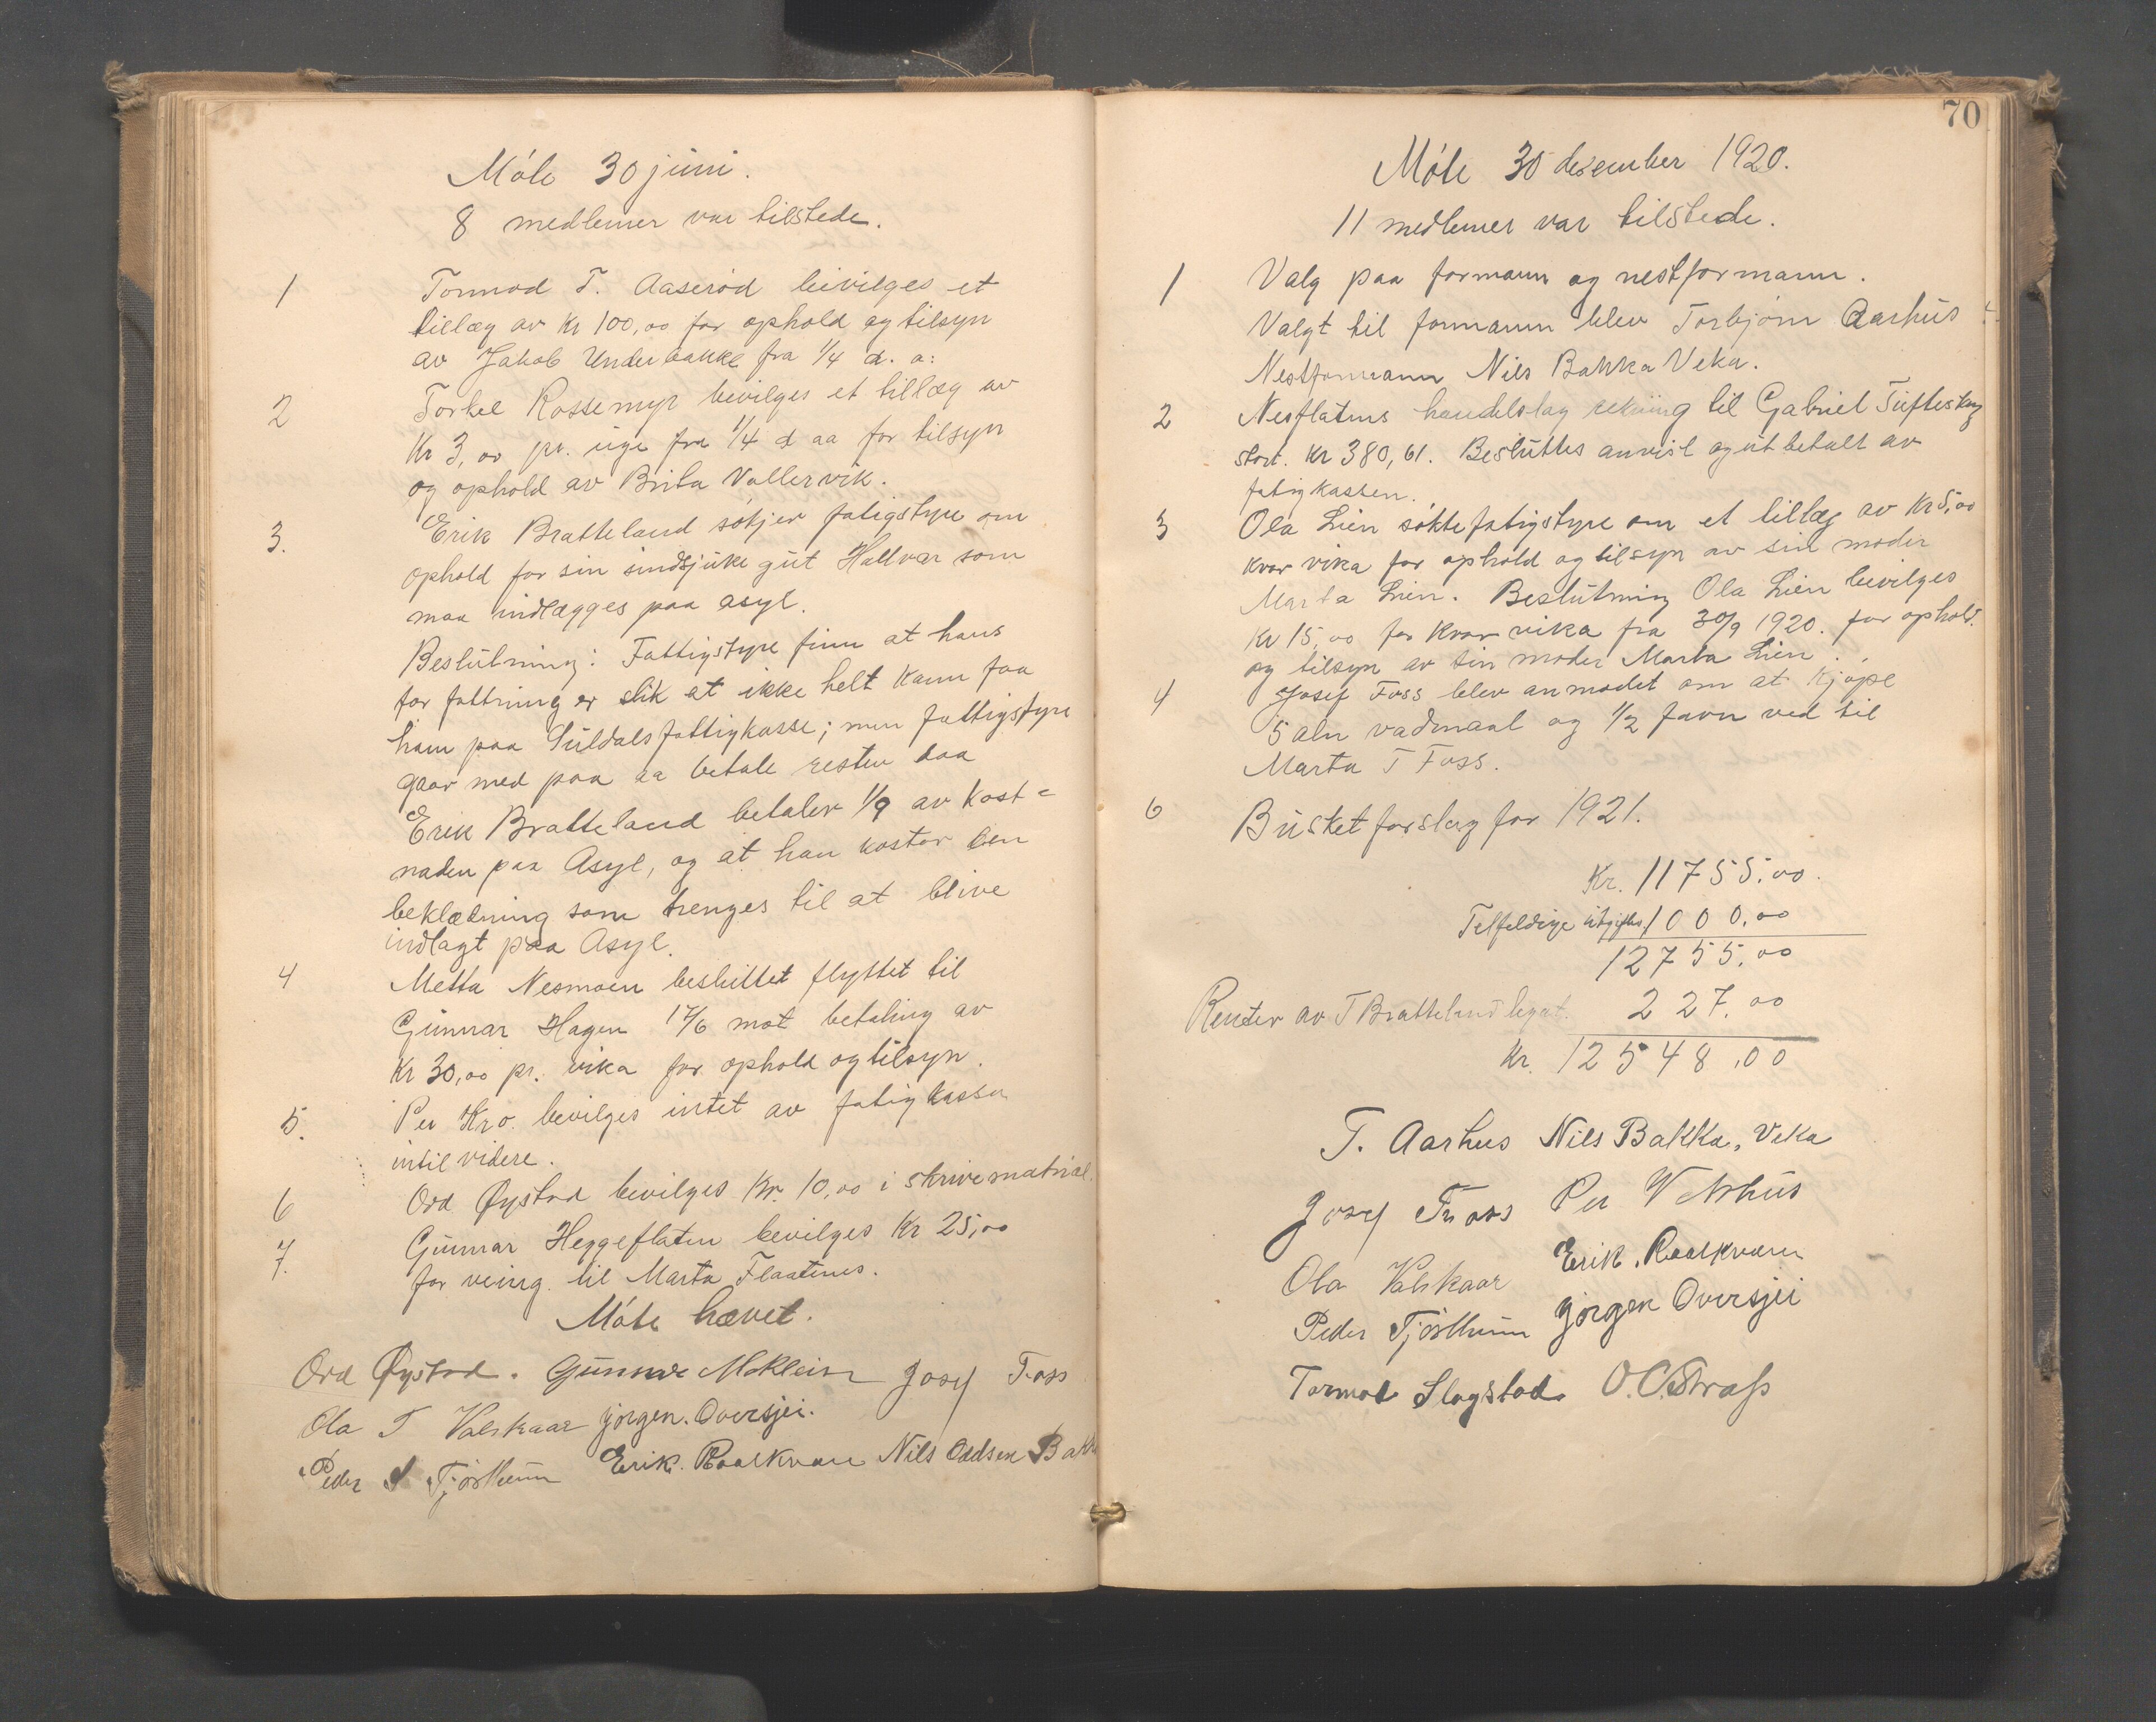 Móte 30 juni.
8 medlemer var tilstede.
1 Tormod T. Aaserød bevilges et
tillæg av Kr 100,00 for ophold og tilsyn
av Jakob Underbakke fra 1/4 d. a:
2 Torkel Rossemyr bevilges et tillæg av
Kr 3,00 pr. uge fra 1/4 d aa for tilsyn
og ophold av Brita Vallervik.
3. Erik Bratteland søkjer fatigstyre om
ophold for sin sindsjuke gut Hallvar som
maa indlægges paa asyl.
Beslutning: Fattigstyre finn at hans
forfattning er slik at ikke helt kann faa
ham paa Suldals fattigkasse; men fattigstyre
gaar med paa aa betale resten daa
Erik Bratteland betaler 1/9 av kost=
naden paa Asyl, og at han koster den
beklædning som trenges til at blive
indlagt paa Asyl.
4 Metta Nesmoen besluttet flyttet til
Gunnar Hagen 17/6 mot betaling av
Kr 30,00 pr. vika for ophold og tilsyn.
5. Per Kro. bevilges intet av fatigkassen
intil videre.
6 Ord Øystad bevilges Kr. 10,00 i skrivematrial.
7. Gunnar Heggeflaten bevilges Kr 25,00
for veing. til Marta Flaatenes.
Móte hævet.
Ord Øystad. Gunnar Mokleiv Josef Foss
Ola T Valskaar Jørgen. Oversjei.
Peder Tjøstheim Erik. Raalkvam Nils Oddsen Bakka
70
Móte 30 desember 1920.
11 medlemer var tilstede.
1 Valg paa formann og nestformann.
Valgt til formann blev Torbjørn Aarhus
Nestformann Nils Bakka Veka.
2 Nesflatens handelslag rekning til Gabriel Tufteskog
stort. Kr 380,61. Besluttes anvist og utbetalt av
fatigkassen.
3 Ola Lien søkte fatigstyre om et tillæg av Kr 5,00
kvar vika for ophold og tilsyn av sin moder
Marta Lien. Beslutning Ola Lien bevilges
Kr 15,00 for kvar vika fra 30/9 1920. for ophold.
og tilsyn av sin moder Marta Lien.
4 Josef Foss blev anmodet om at kjøpe
5 aln vadmaal og 1/2 favn ved til
Marta T Foss.
6 Busketforslag for 1921.
Kr. 11755.00.
Telfeldige utgifter 1000.00
12755.00
Renter av T Bratteland legat. 227.00
Kr. 12548,00
T. Aarhus Nils Bakka, Veka
Josef Foss Per Vetrhus
Ola Valskaar Erik. Raalkvam
Peder Tjøstheim Jørgen Oversjei
Tormod Slagstad. O.